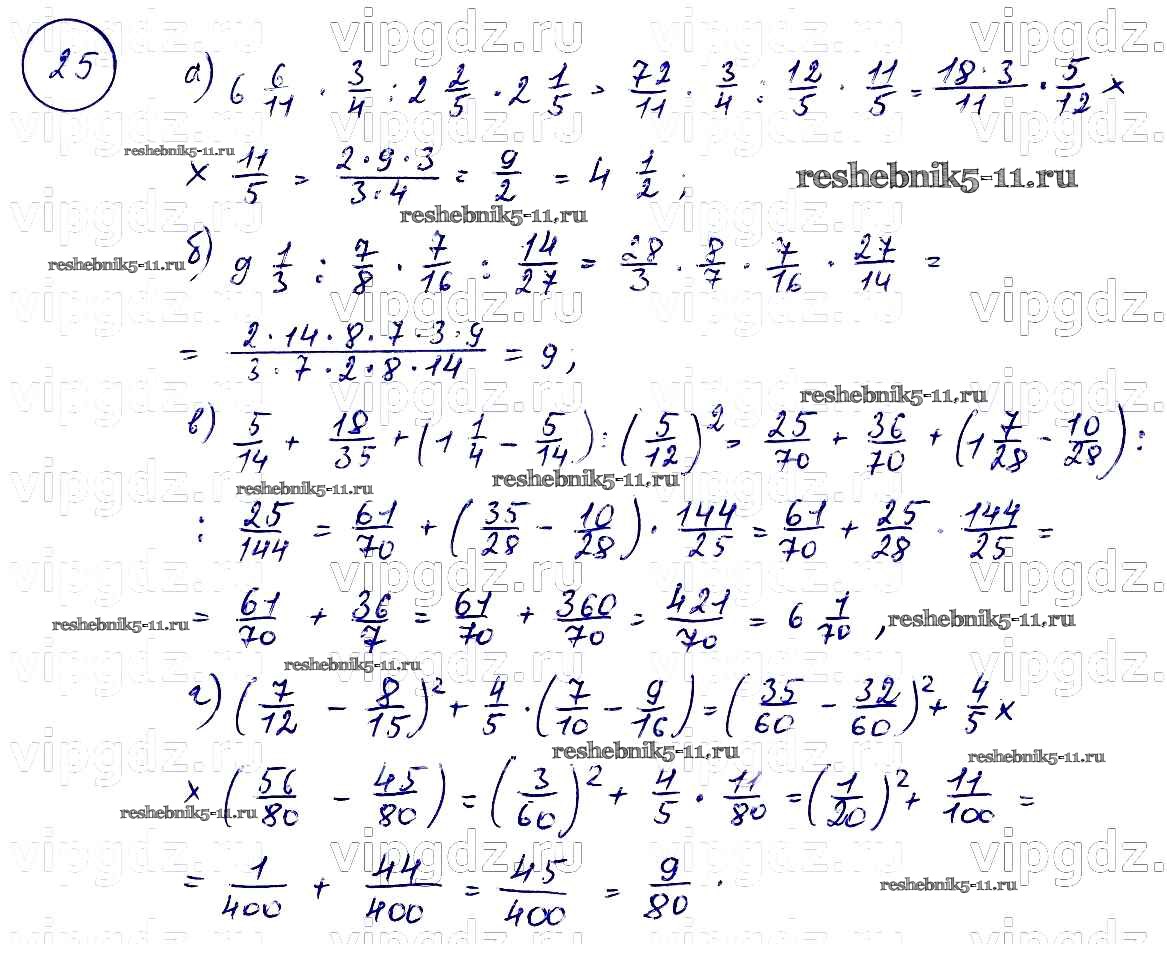 25
а) 6 6/11 · 3/4 : 2 2/5 · 2 1/5 = 72/11 · 3/4 : 12/5 · 11/5 = 18·3/11 · 5/12 ×
× 11/5 = 2·9·3/3·4 = 9/2 = 4 1/2 ;
б) 9 1/3 : 7/8 · 7/16 : 14/27 = 28/3 · 8/7 · 7/16 · 27/14 =
= 2·14·8·7·3·9/3·7·2·8·14 = 9 ;
в) 5/14 + 18/35 + (1 1/4 - 5/14) : (5/12)² = 25/70 + 36/70 + (1 7/28 - 10/28) :
: 25/144 = 61/70 + (35/28 - 10/28) · 144/25 = 61/70 + 25/28 · 144/25 =
= 61/70 + 36/7 = 61/70 + 360/70 = 421/70 = 6 1/70 ,
г) (7/12 - 8/15)² + 4/5 · (7/10 - 9/16) = (35/60 - 32/60)² + 4/5 ×
× (56/80 - 45/80) = (3/60)² + 4/5 · 11/80 = (1/20)² + 11/100 =
= 1/400 + 44/400 = 45/400 = 9/80 .
vipgdz.ru
reshebnik5-11.ru